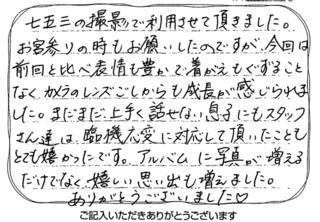 七五三の撮影で利用させて頂きました。
お宮参りの時もお願いしたのですが、今回は
前回と比べ表情も豊かで着がえもぐずること
なく、カメラのレンズごしからも成長が感じられま
した。まだまだ上手く話せない息子にもスタッフ
さん達は臨機応変に対応して頂いたことも
とても嬉かったです。アルバムに写真が増える
だけでなく、嬉しい思い出も増えました。
ありがとうございました♡
ご記入いただきありがとうございます